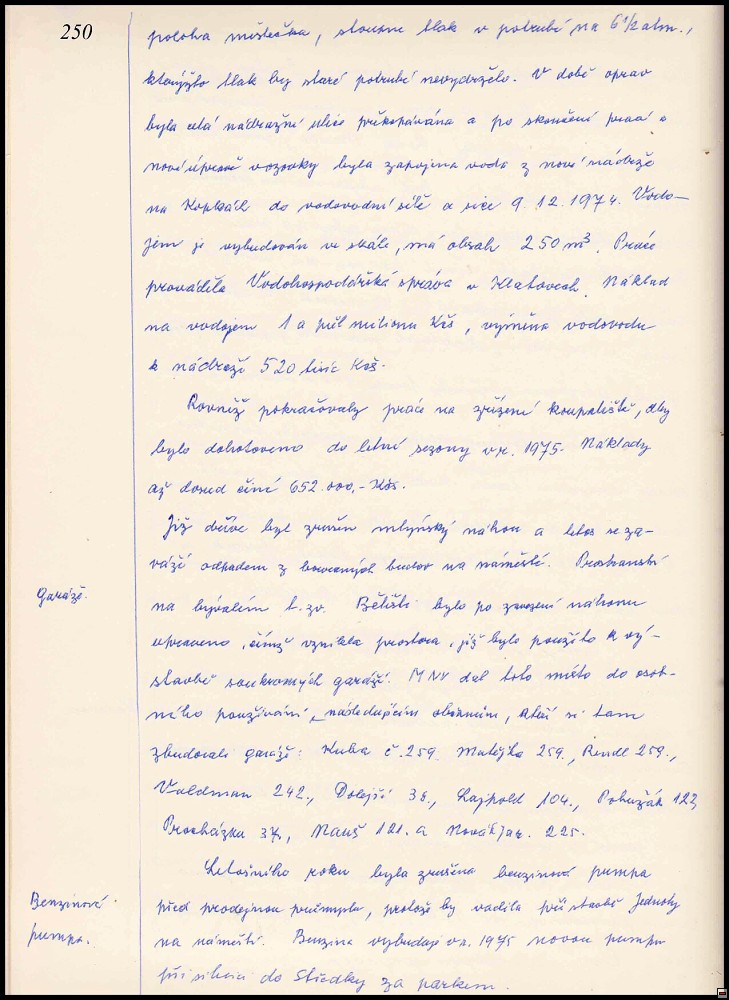 250
poloha městečka, stoupne tlak v potrubí na 6 1/2 atm.,
kterýžto tlak by staré potrubí nevydrželo. V době oprav
byla celá nádražní ulice překopávána a po skončení prací a
nové úpravě vozovky byla zapojena voda z nové nádrže
na Kopkách do vodovodní sítě a sice 9. 12. 1974. Vodo-
jem je vybudován ve skále, má obsah 250 m³. Práce
prováděla Vodohospodářská správa v Klatovech. Náklad
na vodojem 1 a půl milionu Kčs, výměna vodovodu
k nádraží 520 tisíc Kčs.
Rovněž pokračovaly práce na zřízení koupaliště, aby
bylo dohotoveno do letní sezony v r. 1975. Náklady
až dosud činí 652.000,- Kčs.
Již dříve byl zrušen mlýnský náhon a letos se za-
váží odpadem z bouraných budov na náměstí. Prostranství
garáže.
na bývalém t. zv. Bělišti bylo po zavezení náhonu
upraveno, čímž vznikla prostora, jíž bylo použito k vý-
stavbě soukromých garáží. MNV dal toto místo do osob-
ního používání následujícím občanům, kteří si tam
zbudovali garáže: Kuba č. 259. Matějka 259., Rendl 259.,
Valdman 242., Dolejší 36., Lajpold 104., Pohužák 122,
Procházka 37., Nauš 121. a Novák Jar. 225.
Letošního roku byla zrušena benzinová pumpa
Benzinová
před prodejnou průmyslu, protože by vadila při stavbě Jednoty
pumpa.
na náměstí. Benzina vybuduje v r. 1975 novou pumpu
při silnici do Středky za parkem.